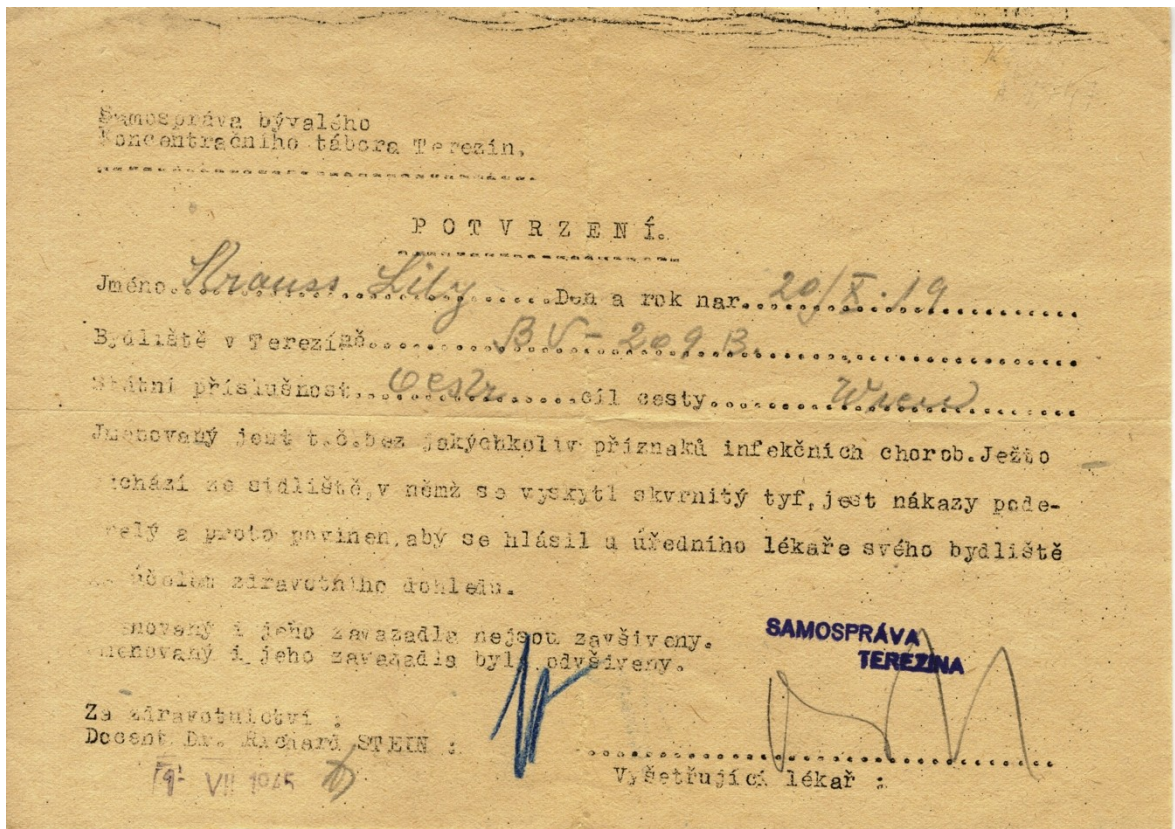 Samospráva bývalého
Koncentračního tábora Terezín.
POTVRZENÍ.
Jméno Krauss Lily Den a rok nar. 20/X. 19
Bydliště v Terezíně BV-209 B.
Státní příslušnost oestr. cíl cesty Wien
Jmenovaný jest t.č.bez jakýchkoliv příznaků infekčních chorob.Ježto
chází ze sídliště,v němž se vyskytl skvrnitý tyf,jest nákazy pode-
zřelý a proto povinen,aby se hlásil u úředního lékaře svého bydliště
za účelem zdravotního dohledu.
Jmenovaný i jeho zavazadla nejsou zavšiveny.
Jmenovaný i jeho zavazadla byla odvšiveny.
SAMOSPRÁVA
TEREZÍNA
Za zdravotnictví :
Docent Dr. Richard STEIN :
VII 1945
Vyšetřující lékař :